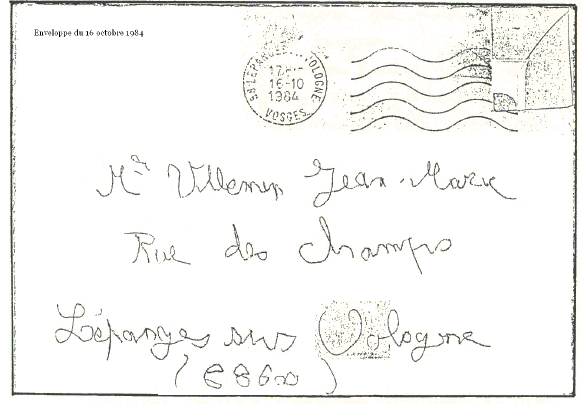 Enveloppe du 16 octobre 1984
88 LEPANGES OLOGNE
17H
16-10
1984
VOSGES
Mr Villemin Jean-Marc
Rue des champs
Lépanges sur Vologne
(88600)